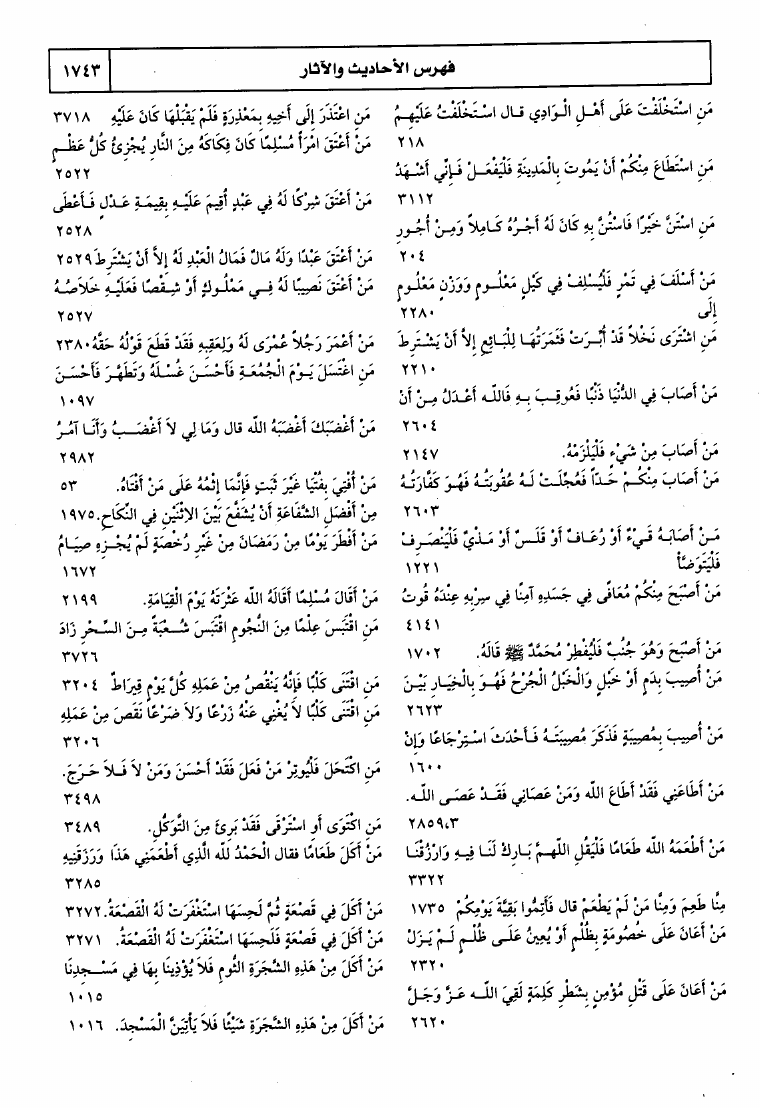 فهرس الأحاديث والآثار
١٧٤٣
مَنِ اسْتَخْلَفْتَ عَلَى أَهْلِ الْوَادِي قال اسْتَخْلَفْتُ عَلَيْهِمُ
٢١٨
مَنِ اسْتَطَاعَ مِنْكُمْ أَنْ يَمُوتَ بِالْمَدِينَةِ فَلْيَفْعَلْ فَإِنِّي أَشْهَدُ
٣١١٢
مَنِ اسْتَنَّ خَيْرًا فَاسْتُنَّ بِهِ كَانَ لَهُ أَجْرُهُ كَامِلاً وَمِنْ أُجُورِ
٢٠٤
مَنْ أَسْلَفَ فِي تَمْرٍ فَلْيُسْلِفْ فِي كَيْلٍ مَعْلُومٍ وَوَزْنٍ مَعْلُومٍ
إِلَى ٢٢٨٠
مَنِ اشْتَرَى نَخْلاً قَدْ أُبِّرَتْ فَثَمَرَتُهَا لِلْبَائِعِ إِلاَّ أَنْ يَشْتَرِطَ
٢٢١٠
مَنْ أَصَابَ فِي الدُّنْيَا ذَنْبًا فَعُوقِبَ بِهِ فَاللَّه أَعْدَلُ مِنْ أَنْ
٢٦٠٤
مَنْ أَصَابَ مِنْ شَيْءٍ فَلْيَلْزَمْهُ. ٢١٤٧
مَنْ أَصَابَ مِنْكُمْ حَدًّا فَعُجِّلَتْ لَهُ عُقُوبَتُهُ فَهُوَ كَفَّارَتُهُ
٢٦٠٣
مَنْ أَصَابَهُ قَيْءٌ أَوْ رُعَافٌ أَوْ قَلَسٌ أَوْ مَذْيٌ فَلْيَنْصَرِفْ
فَلْيَتَوَضَّأْ ١٢٢١
مَنْ أَصْبَحَ مِنْكُمْ مُعَافًى فِي جَسَدِهِ آمِنًا فِي سِرْبِهِ عِنْدَهُ قُوتُ
٤١٤١
مَنْ أَصْبَحَ وَهُوَ جُنُبٌ فَلْيُفْطِرْ مُحَمَّدٌ ﷺ قَالَهُ. ١٧٠٢
مَنْ أُصِيبَ بِدَمٍ أَوْ خَبْلٍ وَالْخَبْلُ الْجُرْحُ فَهُوَ بِالْخِيَارِ بَيْنَ
٢٦٢٣
مَنْ أُصِيبَ بِمُصِيبَةٍ فَذَكَرَ مُصِيبَتَهُ فَأَحْدَثَ اسْتِرْجَاعًا وَإِنْ
١٦٠٠
مَنْ أَطَاعَنِي فَقَدْ أَطَاعَ اللَّه وَمَنْ عَصَانِي فَقَدْ عَصَى اللَّه.
٢٨٥٩،٣
مَنْ أَطْعَمَهُ اللَّه طَعَامًا فَلْيَقُلِ اللَّهمَّ بَارِكْ لَنَا فِيهِ وَارْزُقْنَا
٣٣٢٢
مِنَّا طَعِمَ وَمِنَّا مَنْ لَمْ يَطْعَمْ قال فَأَتِمُّوا بَقِيَّةَ يَوْمِكُمْ ١٧٣٥
مَنْ أَعَانَ عَلَى خُصُومَةٍ بِظُلْمٍ أَوْ يُعِينُ عَلَى ظُلْمٍ لَمْ يَزَلْ
٢٣٢٠
مَنْ أَعَانَ عَلَى قَتْلِ مُؤْمِنٍ بِشَطْرِ كَلِمَةٍ لَقِيَ اللَّه عَزَّ وَجَلَّ
٢٦٢٠
مَنِ اعْتَذَرَ إِلَى أَخِيهِ بِمَعْذِرَةٍ فَلَمْ يَقْبَلْهَا كَانَ عَلَيْهِ ٣٧١٨
مَنْ أَعْتَقَ امْرَأً مُسْلِمًا كَانَ فِكَاكَهُ مِنَ النَّارِ يُجْزِئُ كُلُّ عَظْمٍ
٢٥٢٢
مَنْ أَعْتَقَ شِرْكًا لَهُ فِي عَبْدٍ أُقِيمَ عَلَيْهِ بِقِيمَةِ عَدْلٍ فَأَعْطَى
٢٥٢٨
مَنْ أَعْتَقَ عَبْدًا وَلَهُ مَالٌ فَمَالُ الْعَبْدِ لَهُ إِلاَّ أَنْ يَشْتَرِطَ ٢٥٢٩
مَنْ أَعْتَقَ نَصِيبًا لَهُ فِي مَمْلُوكٍ أَوْ شِقْصًا فَعَلَيْهِ خَلاَصُهُ
٢٥٢٧
مَنْ أَعْمَرَ رَجُلاً عُمْرَى لَهُ وَلِعَقِبِهِ فَقَدْ قَطَعَ قَوْلُهُ حَقَّهُ ٢٣٨٠
مَنِ اغْتَسَلَ يَوْمَ الْجُمُعَةِ فَأَحْسَنَ غُسْلَهُ وَتَطَهَّرَ فَأَحْسَنَ
١٠٩٧
مَنْ أَغْضَبَكَ أَغْضَبَهُ اللَّه قال وَمَا لِي لاَ أَغْضَبُ وَأَنَا آمُرُ
٢٩٨٢
مَنْ أُفْتِيَ بِفُتْيَا غَيْرَ ثَبَتٍ فَإِنَّمَا إِثْمُهُ عَلَى مَنْ أَفْتَاهُ. ٥٣
مِنْ أَفْضَلِ الشَّفَاعَةِ أَنْ يُشَفَّعَ بَيْنَ الاِثْنَيْنِ فِي النِّكَاحِ. ١٩٧٥
مَنْ أَفْطَرَ يَوْمًا مِنْ رَمَضَانَ مِنْ غَيْرِ رُخْصَةٍ لَمْ يُجْزِهِ صِيَامُ
١٦٧٢
مَنْ أَقَالَ مُسْلِمًا أَقَالَهُ اللَّه عَثْرَتَهُ يَوْمَ الْقِيَامَةِ. ٢١٩٩
مَنِ اقْتَبَسَ عِلْمًا مِنَ النُّجُومِ اقْتَبَسَ شُعْبَةً مِنَ السِّحْرِ زَادَ
٣٧٢٦
مَنِ اقْتَنَى كَلْبًا فَإِنَّهُ يَنْقُصُ مِنْ عَمَلِهِ كُلَّ يَوْمٍ قِيرَاطٌ ٣٢٠٤
مَنِ اقْتَنَى كَلْبًا لاَ يُغْنِي عَنْهُ زَرْعًا وَلاَ ضَرْعًا نَقَصَ مِنْ عَمَلِهِ
٣٢٠٦
مَنِ اكْتَحَلَ فَلْيُوتِرْ مَنْ فَعَلَ فَقَدْ أَحْسَنَ وَمَنْ لاَ فَلاَ حَرَجَ.
٣٤٩٨
مَنِ اكْتَوَى أَوِ اسْتَرْقَى فَقَدْ بَرِئَ مِنَ التَّوَكُّلِ. ٣٤٨٩
مَنْ أَكَلَ طَعَامًا فقال الْحَمْدُ للَّه الَّذِي أَطْعَمَنِي هَذَا وَرَزَقَنِيهِ
٣٢٨٥
مَنْ أَكَلَ فِي قَصْعَةٍ ثُمَّ لَحِسَهَا اسْتَغْفَرَتْ لَهُ الْقَصْعَةُ. ٣٢٧٢
مَنْ أَكَلَ فِي قَصْعَةٍ فَلَحِسَهَا اسْتَغْفَرَتْ لَهُ الْقَصْعَةُ. ٣٢٧١
مَنْ أَكَلَ مِنْ هَذِهِ الشَّجَرَةِ الثُّومِ فَلاَ يُؤْذِينَا بِهَا فِي مَسْجِدِنَا
١٠١٥
مَنْ أَكَلَ مِنْ هَذِهِ الشَّجَرَةِ شَيْئًا فَلاَ يَأْتِيَنَّ الْمَسْجِدَ. ١٠١٦